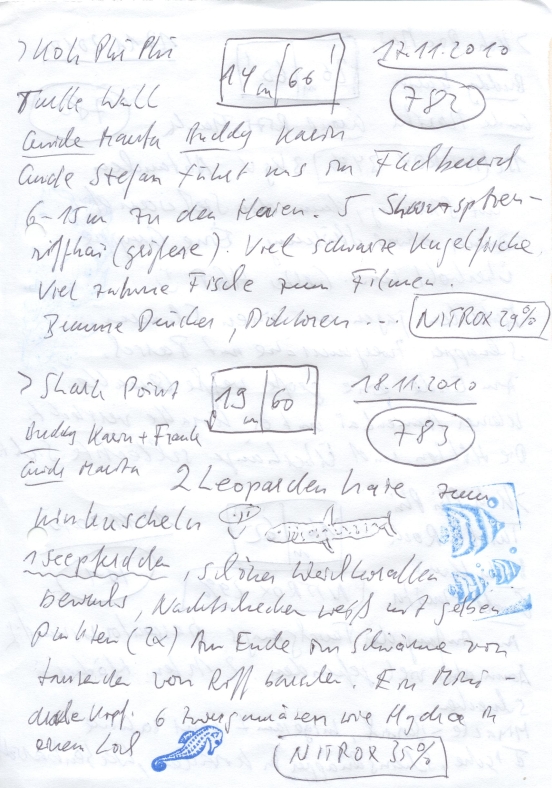 > Koh Phi Phi
14m | 60'
17.11.2010
Turtle Wall
782
Guide Marita Buddy Karin
Guide Stefan führt uns im Flachbereich
6-15m zu den Haien. 5 Schwarzspitzen-
riffhai (größere). Viel schwarze Kugelfische.
Viel zahme Fische zum Filmen.
Drücker, Doktoren ...
NITROX 29%
> Shark Point
19m | 60
18.11.2010
Buddy Karin + Frank
783
Guide Marita
2 Leoparden haie zum
hinkuscheln
1 Seepferdchen, schöner Weichkorallen
bewuchs, Nachtschnecken weiß mit gelben
Punkten (2x) Am Ende im Schwarme von
tausenden von Riff. Ein Mini-
6 wie Hydra in
einem Loch
NITROX 35%